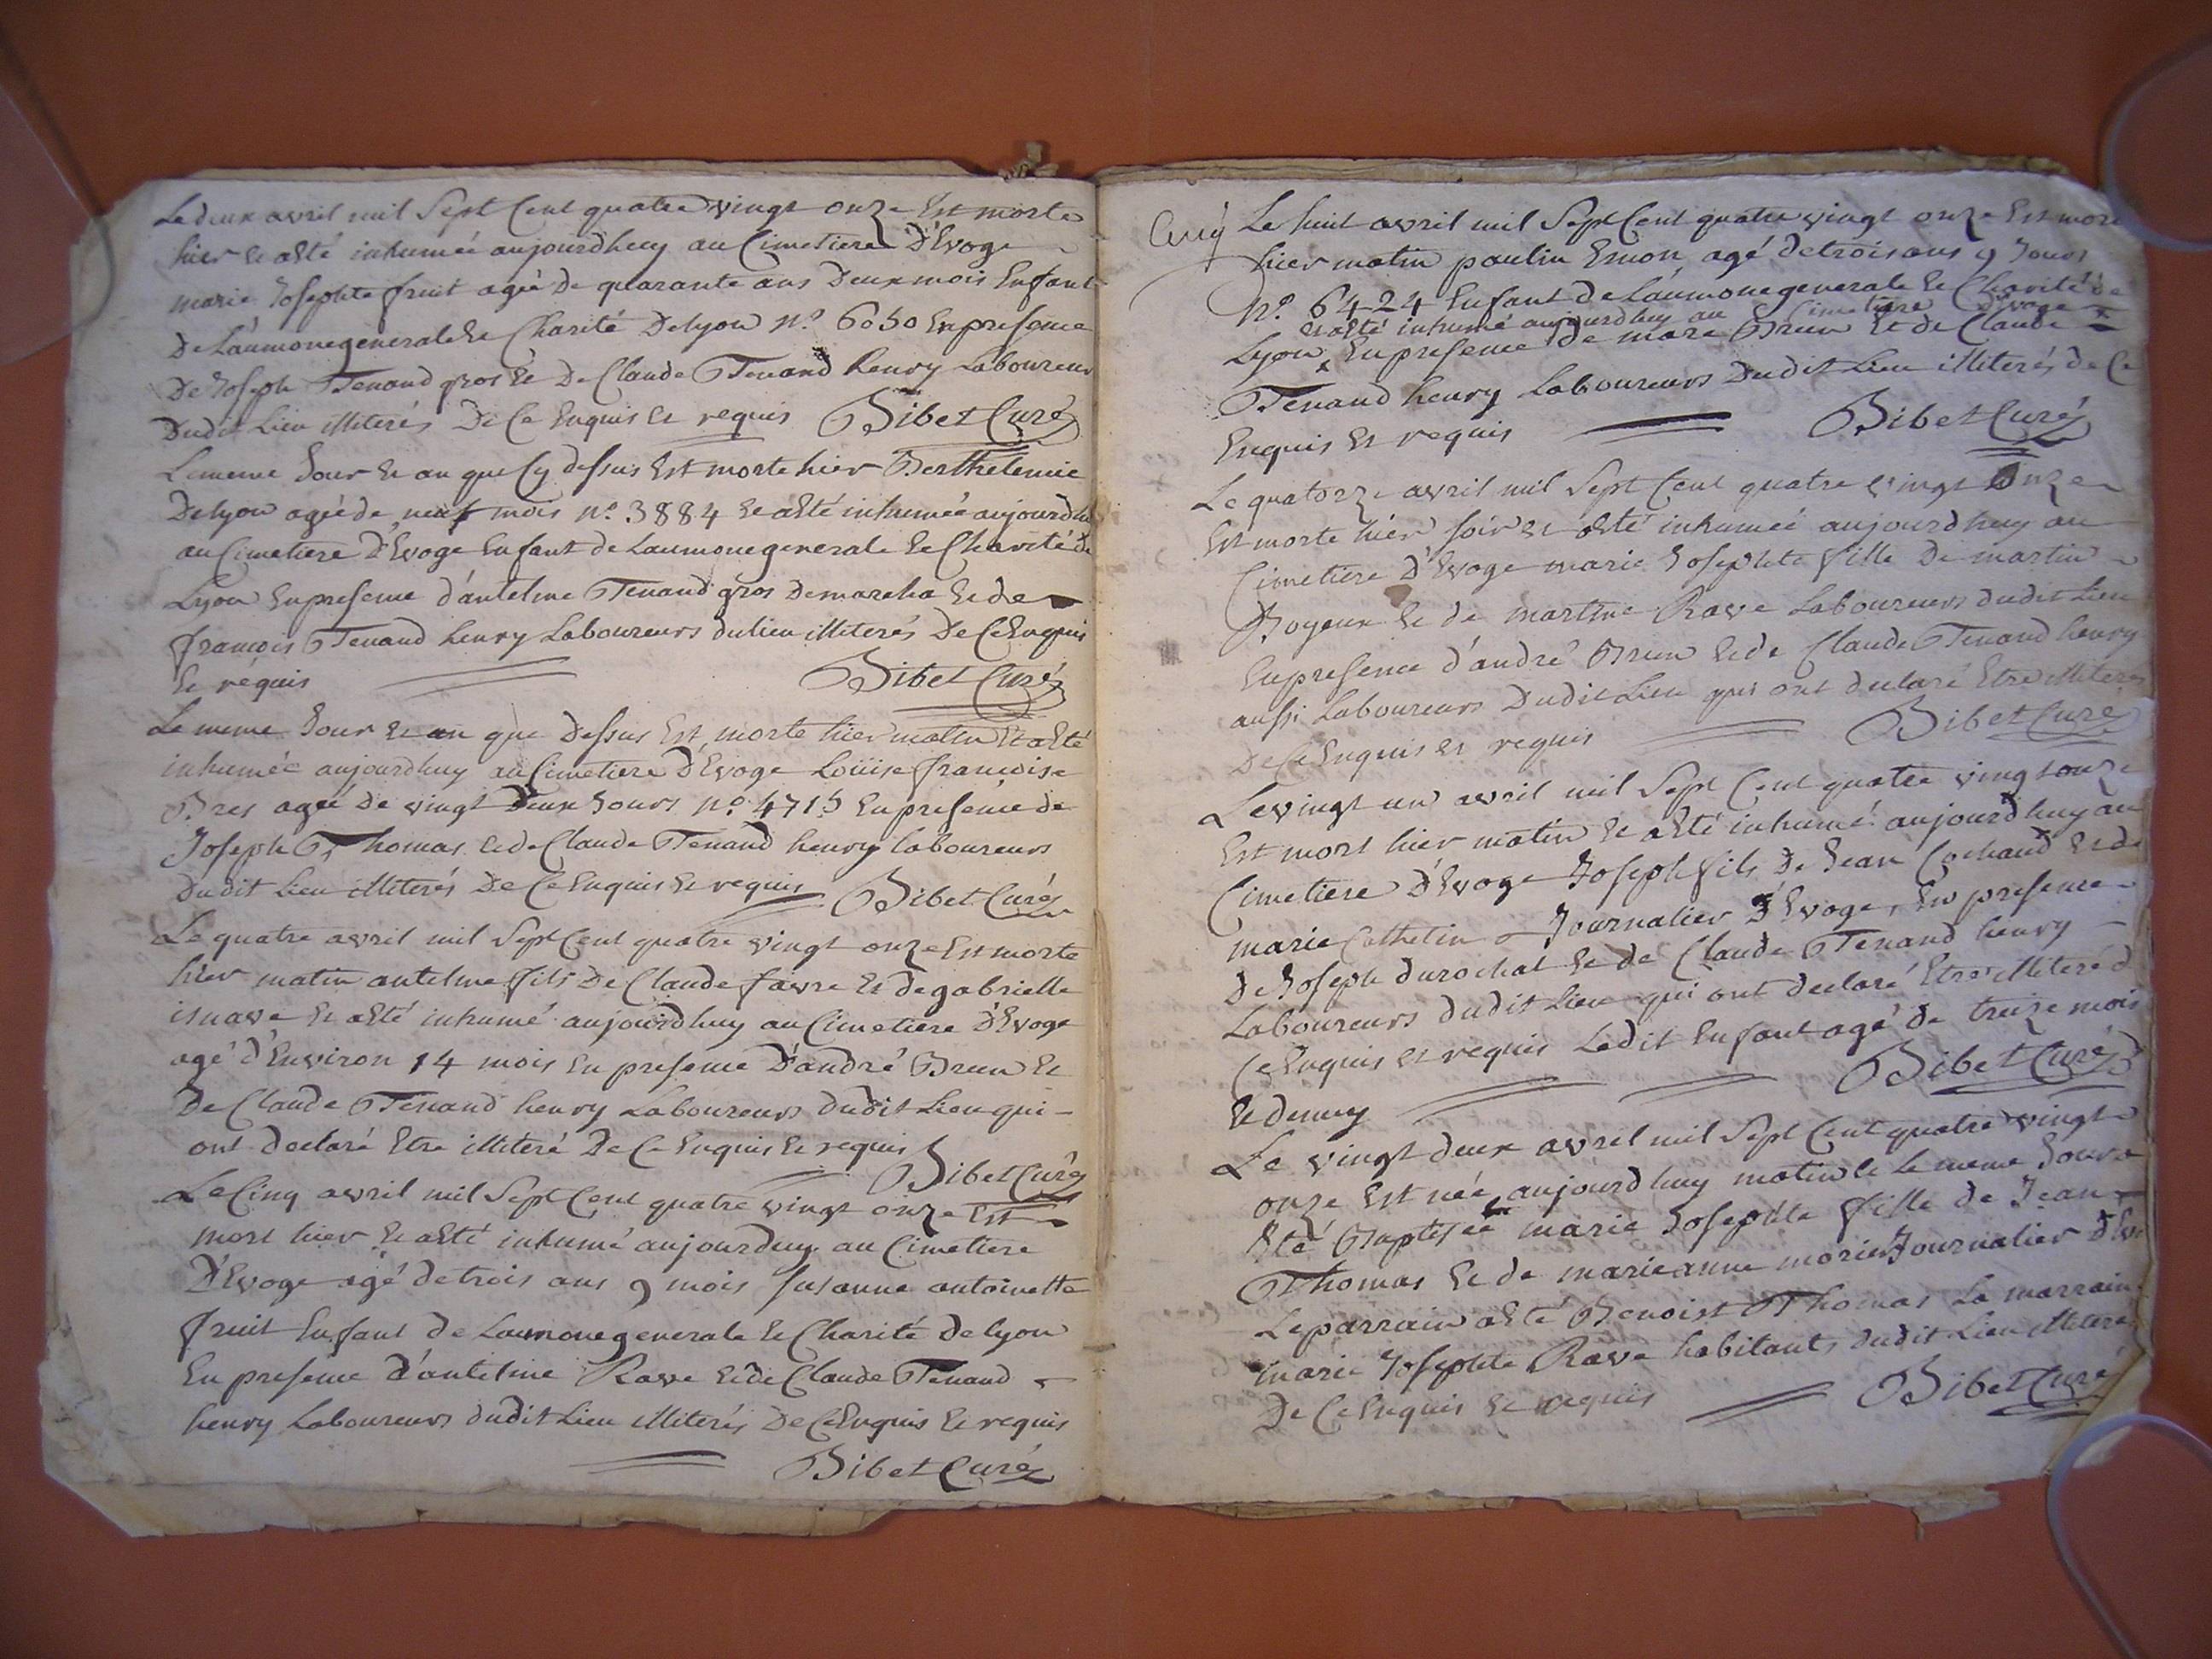 Le deux avril mil Sept Cent quatre vingt onze Est morte
hier Et a Eté inhumée aujourdhuy au Cimetiere D'Evoge
marie Josephte fruit agée De quarante ans Deux mois Enfant
De Laumone generale Et Charité De lyon n.º 6050 En presence
De Joseph Tenand gros Et De Claude Tenand henry Laboureurs
Dudit Lieu illiterés De Ce Enquis Et requis Bibet Curé
Le meme Jour Et an que Cy dessus Est morte hier Berthelemie
De lyon agée de neuf mois n.º 3884 Et a Eté inhumée aujourdhuy
au Cimetiere D'Evoge Enfant de Laumone generale Et Charité de
Lyon En presence d'antelme Tenand gros Demareha Et de
françois Tenand henry Laboureurs du lieu illiterés De Ce Enquis
Et requis Bibet Curé
Le meme Jour Et an que Dessus Est morte hier matin Et a Eté
inhumée aujourdhuy au Cimetiere D'Evoge Loüise françoise
Bres agée de vingt Deux Jours n.º 4715 En presence de
Joseph Thomas Et de Claude Tenand henry laboureurs
dudit Lieu illiterés De Ce Enquis Et requis Bibet Curé
Le quatre avril mil Sept Cent quatre vingt onze Est morte
hier matin antelme fils De Claude favre Et de gabrielle
isnave Et a Eté inhumé aujourdhuy au Cimetiere D'Evoge
agé d'Environ 14 mois En presence D'andré Brun Et
De Claude Tenand henry Laboureurs dudit Lieu qui
ont declaré Etre illiteré De Ce Enquis Et requis Bibet Curé
Le Cinq avril mil Sept Cent quatre vingt onze Est
mort hier Et a Eté inhumé aujourduy au Cimetiere
D'Evoge agé de trois ans 9 mois susanne antoinette
fruit Enfant de Laumone generale Et Charité de lyon
En presence d'antelme Rave Et de Claude Tenand
henry Laboureurs dudit Lieu illiterés De Ce Enquis Et requis
Bibet Curé
Le huit avril mil Sept Cent quatre vingt onze Est mort
hier matin paulin Emon agé de trois ans 9 Jours
N.º 6424 Enfant de Laumone generale Et Charité de
Et a Eté inhumé aujourdhuy au Cimetiere D'Evoge
Lyon x En presence de mare Brun Et de Claude
Tenand henry Laboureurs Dudit Lieu illiterés de Ce
Enquis Et requis Bibet Curé
Le quatorze avril mil Sept Cent quatre vingt onze
Est morte hier soir Et a Eté inhumée aujourdhuy au
Cimetiere D'Evoge marie Josephte fille De martin
Boyeux Et de martine Rave Laboureurs dudit Lieu
En presence d'andré Brun Et de Claude Tenand henry
aussi Laboureurs Dudit Lieu qui ont declaré Etre illiterés
De Ce Enquis Et requis Bibet Curé
Le vingt un avril mil Sept Cent quatre vingt onze
Est mort hier matin Et a Eté inhumé aujourdhuy au
Cimetiere D'Evoge Joseph fils De Jean Cochaud Et de
marie Cathelin Journalier D'Evoge, En presence
De Joseph durochat Et de Claude Tenand henry
Laboureurs dudit Lieu qui ont declaré Etre illiteré d
Ce Enquis Et requis Ledit Enfant agé de treize mois
Et demy Bibet Curé
Le vingt deux avril mil Sept Cent quatre vingt
onze Est née aujourdhuy matin Et Le meme Jour a
Eté Baptisée marie Josephte fille de Jean
Thomas Et de marie anne morier Journalier D'Ev
Le parrain a Eté Benoist Thomas La marraine
marie Josephte Rave habitants dudit Lieu illiterés
De Ce Enquis Et requis Bibet Curé